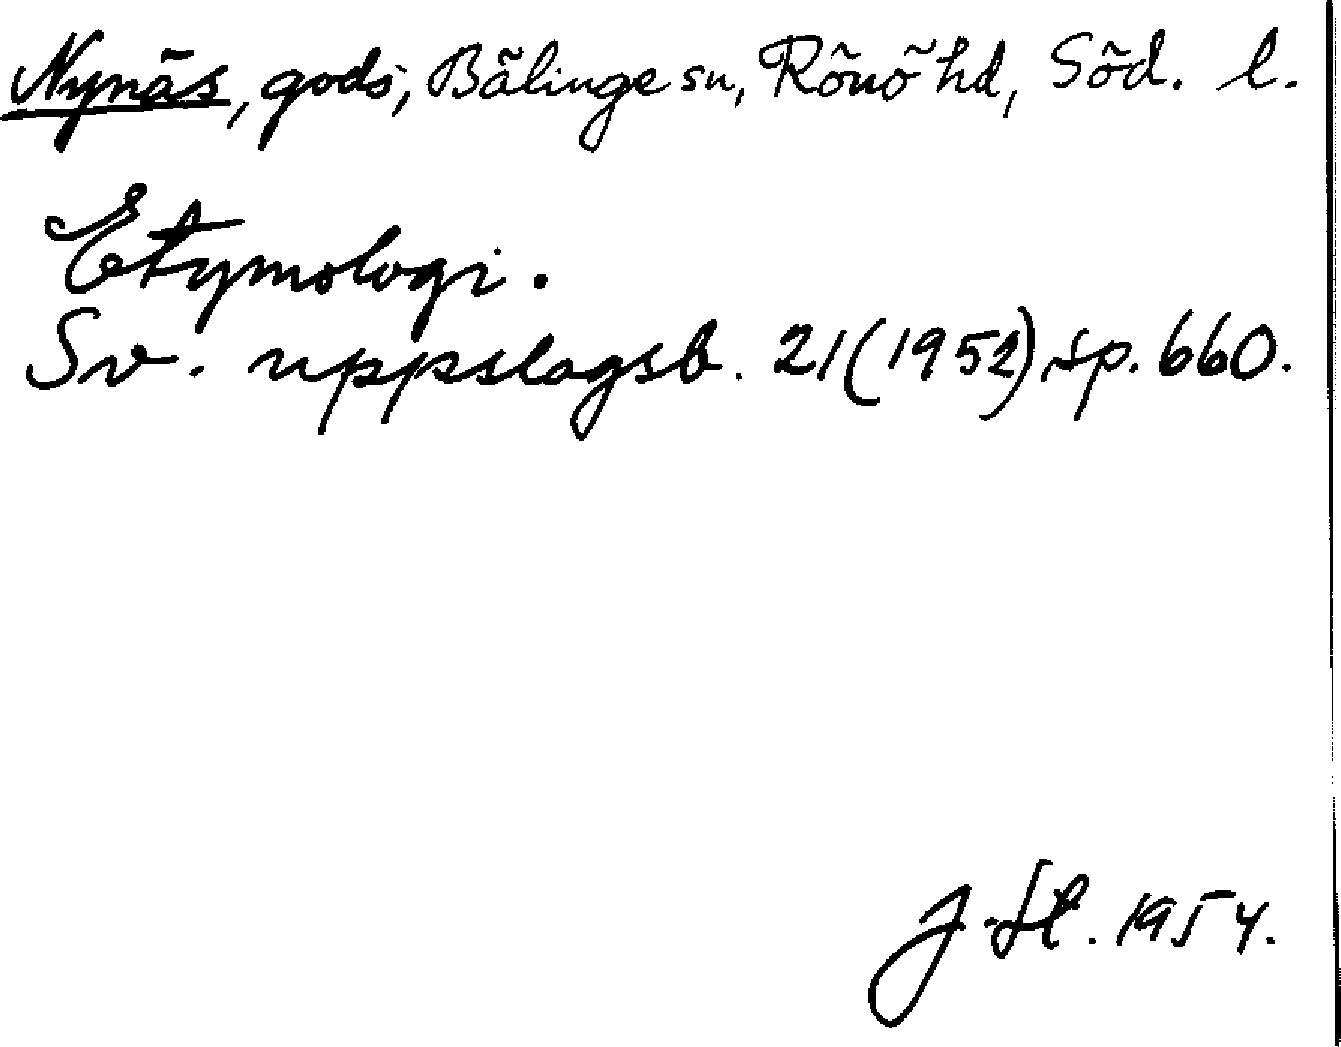 Nynäs, gods, Bälinge sn, Rönö hd, Söd. l.
Etymologi.
Sv. uppslagsb. 21 (1952) sp. 660.
J. St. 1954.